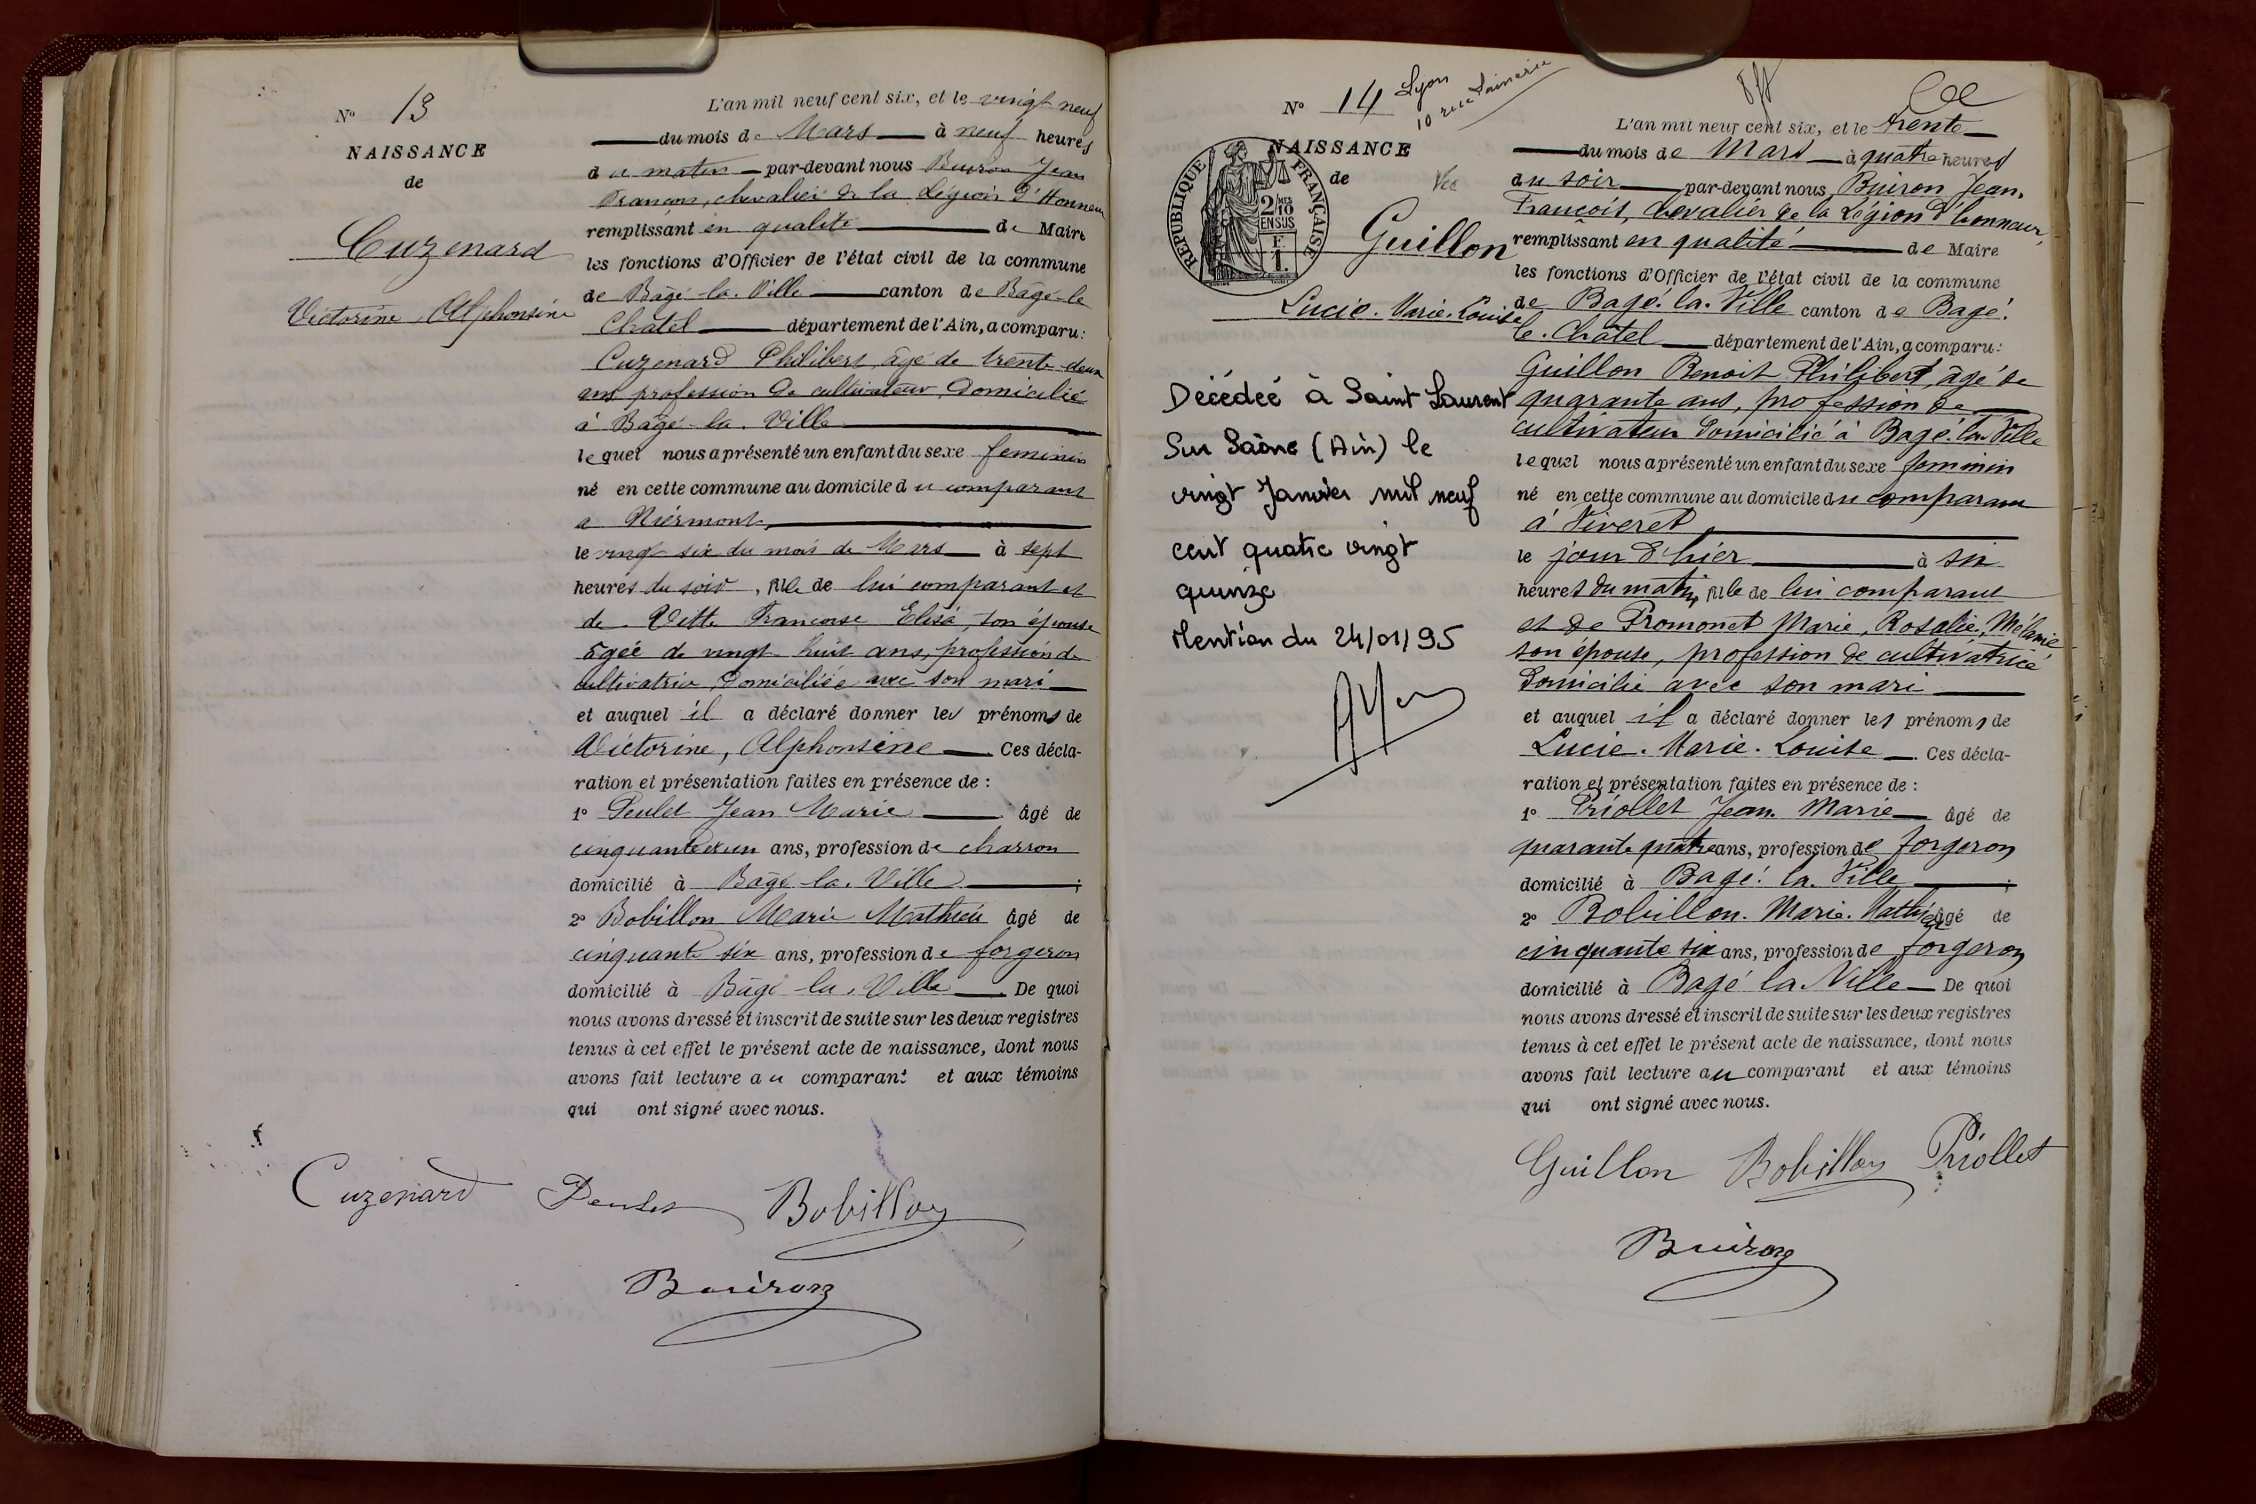 N° 13
NAISSANCE
de
Cuzenard
Victorine, Alphonsine
L'an mil neuf cent six, et le vingt neuf
du mois de Mars à neuf heures
du matin par-devant nous Buiron Jean
François, chevalier de la Légion d'Honneur
remplissant en qualité de Maire
les fonctions d'Officier de l'état civil de la commune
de Bâgé-la-Ville canton de Bâgé-le
Châtel département de l'Ain, a comparu:
Cuzenard Philibert, âgé de trente-deux
ans profession de cultivateur, domicilié
à Bâgé-la-Ville
lequel nous a présenté un enfant du sexe feminin
né en cette commune au domicile du comparant
a
le vingt six du mois de Mars à sept
heures du soir, fille de lui comparant et
de Vitte Francoise Elisa, son épouse
âgée de vingt huit ans, profession de
cultivatrice, domiciliée avec son mari
et auquel il a déclaré donner les prénoms de
Victorine, Alphonsine Ces décla-
ration et présentation faites en présence de :
1° Jean Marie âgé de
cinquante un ans, profession de charron
domicilié à Bâgé-la-Ville ;
2° Bobillon Marie Mathieu âgé de
cinquante six ans, profession de forgeron
domicilié à Bâgé-la-Ville De quoi
nous avons dressé et inscrit de suite sur les deux registres
tenus à cet effet le présent acte de naissance, dont nous
avons fait lecture au comparant et aux témoins
qui ont signé avec nous.
Cuzenard Bobillon
Buiron
N° 14
Lyon
10 rue Lainerie
NAISSANCE
de
RÉPUBLIQUE FRANÇAISE
2/10
EN SUS
F
1.
Guillon
Lucie. Marie. Louise
Décédée à Saint Laurent
Sur Saône (Ain) le
vingt Janvier mil neuf
cent quatre vingt
quinze
Mention du 24/01/95
L'an mil neuf cent six, et le trente
du mois de Mars à quatre heures
du soir par-devant nous Buiron Jean,
François, chevalier de la Légion d'honneur,
remplissant en qualité de Maire
les fonctions d'Officier de l'état civil de la commune
de Bagé. la. Ville canton de Bagé.
le. Châtel département de l'Ain, a comparu:
Guillon Benoit Philibert, âgé de
quarante ans, profession de
cultivateur domicilié à Bagé. la. Ville
lequel nous a présenté un enfant du sexe feminin
né en cette commune au domicile du comparant
à Viveret
le jour d'hier à six
heures du matin, fille de lui comparant
et de Promonet Marie, Rosalie, Mélanie
son épouse, profession de cultivatrice
domicilié avec son mari
et auquel il a déclaré donner les prénoms de
Lucie. Marie. Louise. Ces décla-
ration et présentation faites en présence de :
1° Priollet Jean. Marie âgé de
quarante quatre ans, profession de forgeron
domicilié à Bagé. la. Ville ;
2° Bobillon. Marie. Mathieu âgé de
cinquante six ans, profession de forgeron
domicilié à Bagé la. Ville De quoi
nous avons dressé et inscrit de suite sur les deux registres
tenus à cet effet le présent acte de naissance, dont nous
avons fait lecture au comparant et aux témoins
qui ont signé avec nous.
Guillon Bobillon Priollet
Buiron